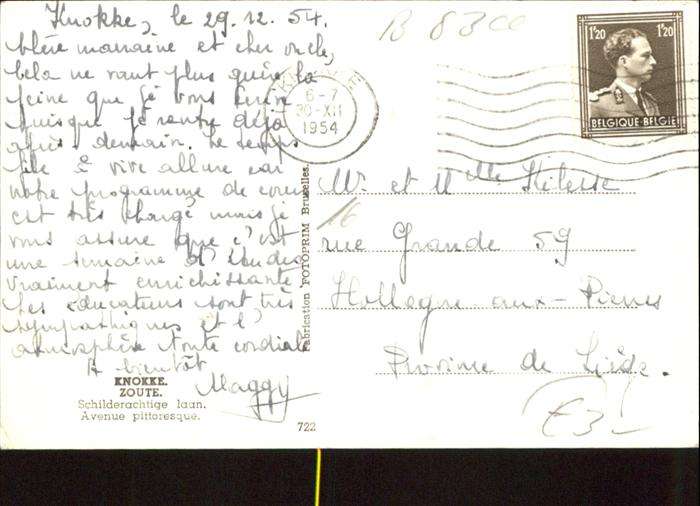 Knokke, le 29.12.54.
Chère marraine et cher oncle,
Cela ne vaut plus guère la
peine que je vous écrive
puisque je rentre déjà
après demain. Le temps
file à vive allure car
notre programme de cours
est très chargé mais je
vous assure que c'est
une semaine d'études
vraiment enrichissante.
Les éducateurs sont très
sympathiques et l'
atmosphère toute cordiale
A bientôt
Maggy
KNOKKE.
ZOUTE.
Schilderachtige laan.
Avenue pittoresque.
722
Fabrication FOTOPRIM Bruxelles.
B 8300
6-7
30-XII
1954
1'20 1'20
BELGIQUE-BELGIË
Mr. et Mlle
16
rue Grande 59
Hollogne aux-Pierres
Province de Liège.
€3-